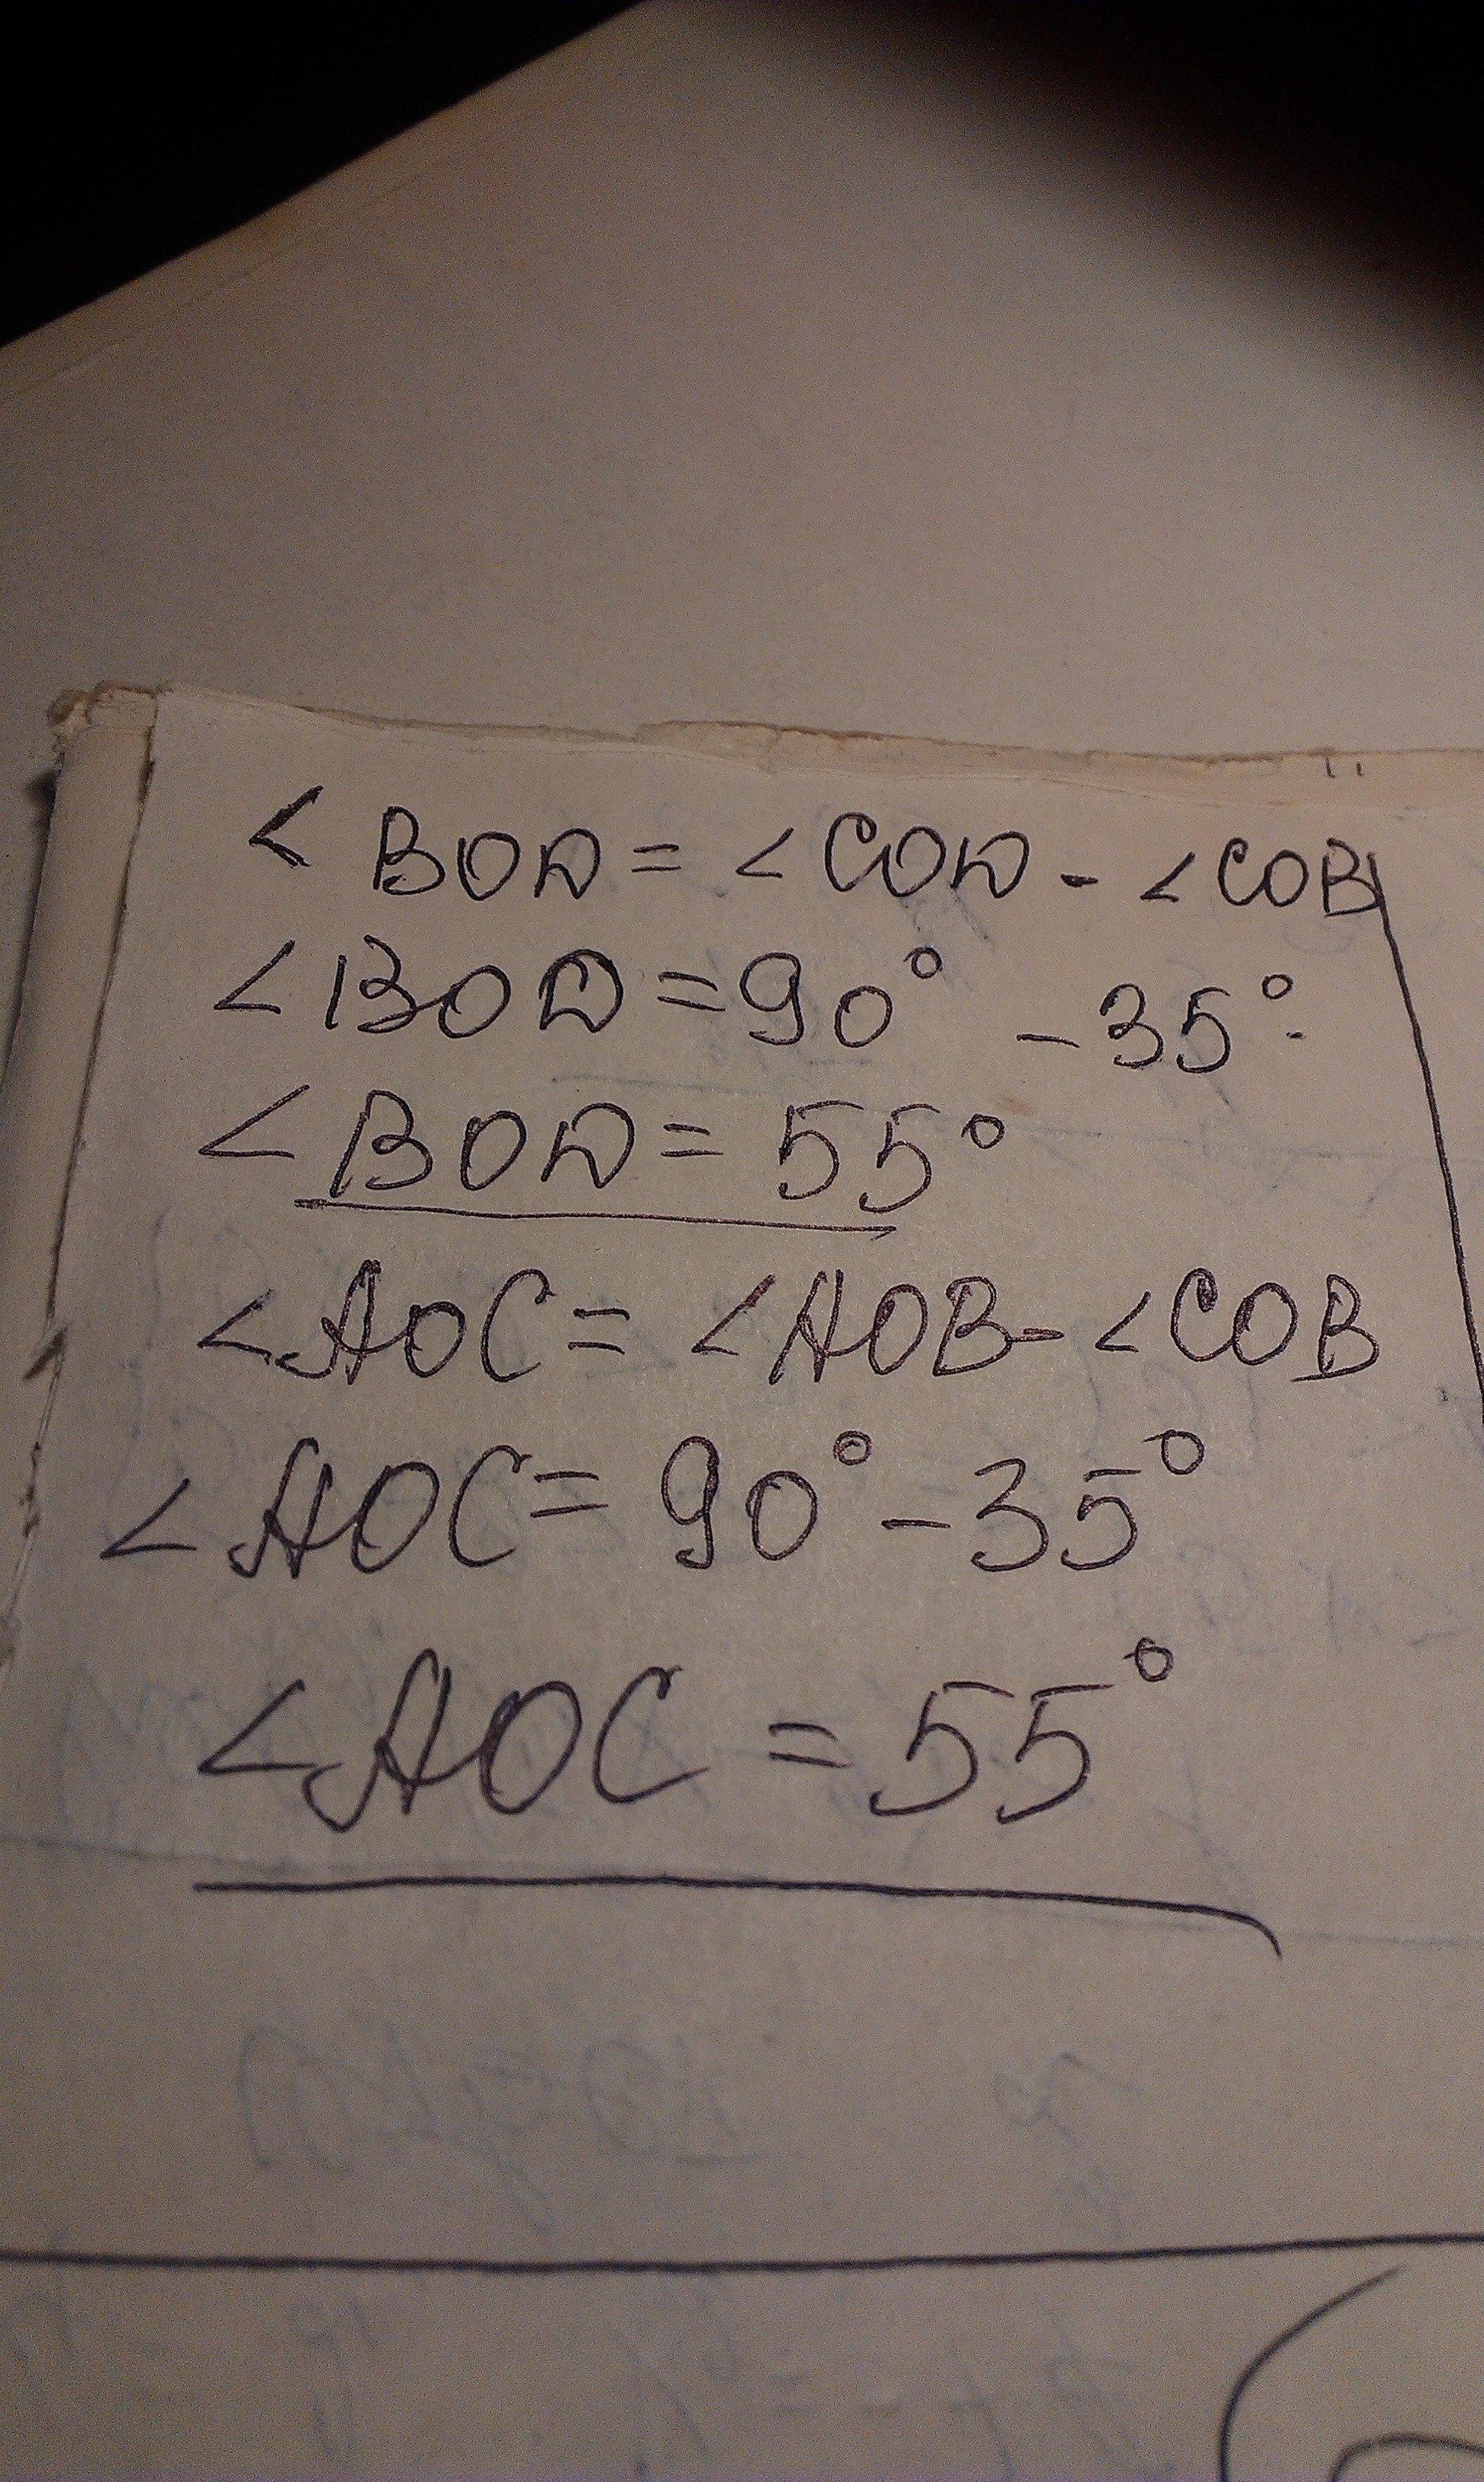 < BOD = < COD - < COB
< BOD = 90° - 35°
< BOD = 55°
< AOC = < AOB - < COB
< AOC = 90° - 35°
< AOC = 55°